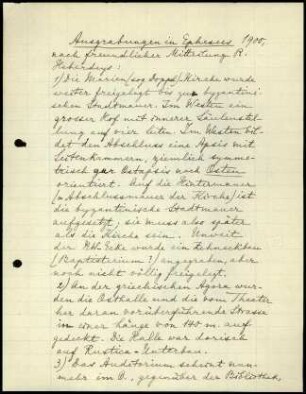 Ausgrabungen in Ephesos 1905,
nach freundlicher Mitteilung R.
Heberdeys:
1) Die Marien (sog. Dopp.) Kirche wurde
weiter freigelegt bis zur byzantini-
schen Stadtmauer. Im Westen ein
grosser Hof mit innerer Säulenstel-
lung auf vier Seiten. Im Westen bil-
det den Abschluss eine Apsis mit
Seitenkammern, ziemlich symme-
trisch zur Ostapsis nach Osten
orientiert. Auf die Hintermauer
(= Abschlussmauer der Kirche) ist
die byzantinische Stadtmauer
aufgesetzt, sie muss also später
als die Kirche sein. Unweit
der Ecke wurde ein
(Baptisterium?) angegraben, aber
noch nicht völlig freigelegt.
2) An der griechischen Agora wur-
den die Osthalle und die vom Theater
her daran vorüberführende Strasse
in einer Länge von 140 m. auf-
gedeckt. Die Halle war dorisch
auf Rustica-Unterbau.
3) Das Auditorium scheint nun-
mehr im O., gegenüber der Bibliothek,